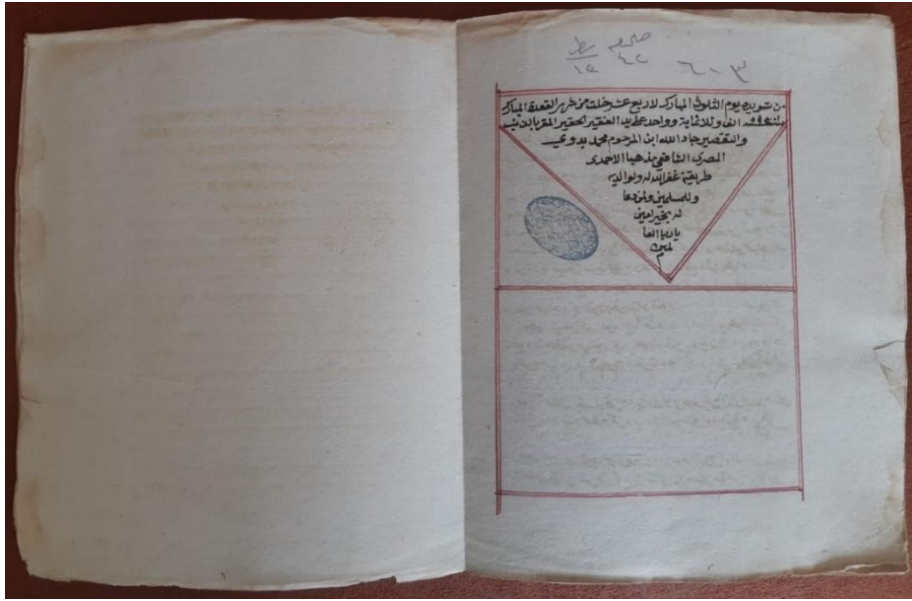 صحيفه سطر
٤٢ ١٢
٣-٦
من تسويده يوم الثلوث المبارك لاربع عشر خلت من شهر القعدة المبارك
الف وثلاثماية وواحد على يد الفقير الحقير المقر بالذنب
والتقصير جاد الله ابن المرحوم محمد بدوي
المصري الشافعي مذهبا الاحمدى
طريقة غفر الله له ولوالديه
وللمسلمين ولمن دعا
له بخير امين
يا رب العا
لمين
م